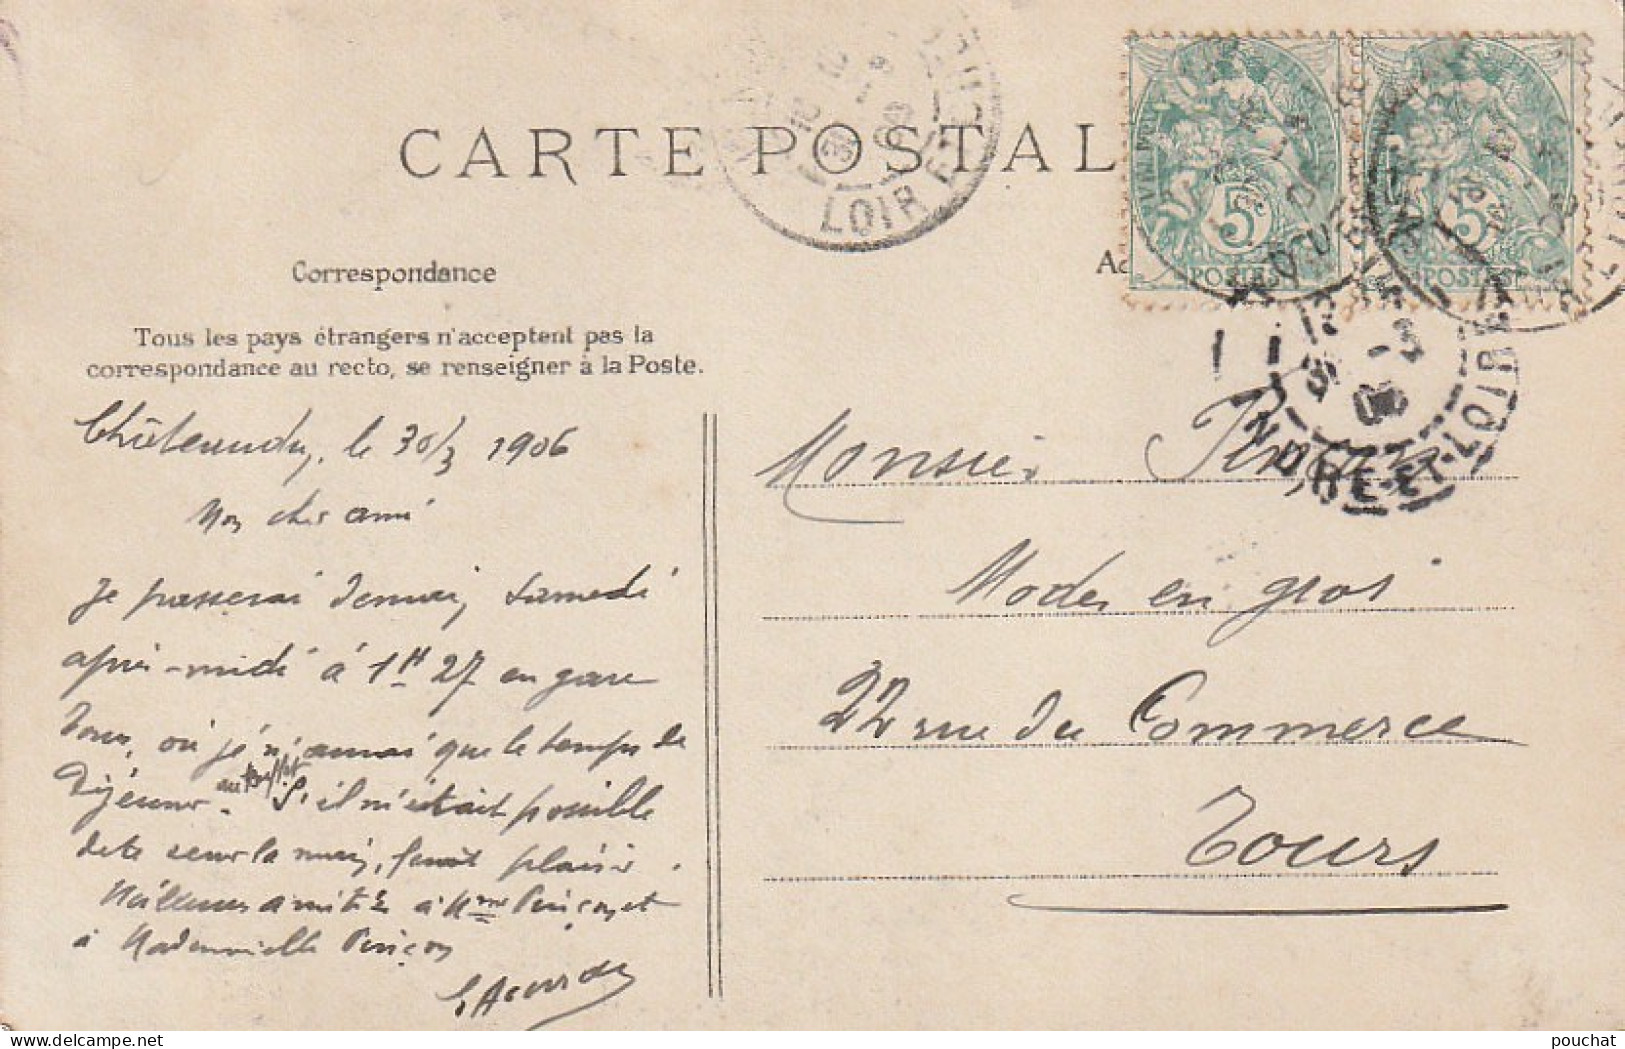 CARTE POSTAL
Correspondance
Tous les pays étrangers n'acceptent pas la
correspondance au recto, se renseigner à la Poste.
LOIR ET CHER
5
POSTES
5
POSTES
INDRE-ET-LOIRE
Châteaudun, le 30/3 1906
Mon cher ami
Je passerai demain, samedi
après-midi à 1H 27 en gare
Tours, où je n'aurai que le temps de
déjeuner au Buffet. S'il m'était possible
de te serrer la main, ferait plaisir.
Meilleures amitiés à Mme Pinçon et
à Mademoiselle Pinçon
Monsieur Pinçon
Modes en gros
22 rue du Commerce
Tours
pouchat